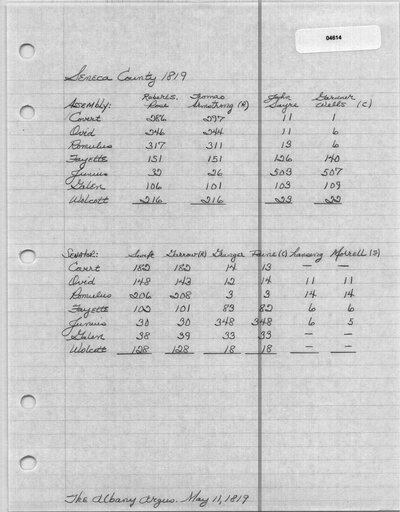 04614
Seneca County 1819
Robert S. Thomas John Gardner
Assembly: Rose Armstrong (R) Sayre Wells (C)
Covert 286 297 11 1
Ovid 246 244 11 6
Romulus 317 311 13 6
Fayette 151 151 126 140
Junius 32 26 503 507
Galen 106 101 103 109
Wolcott 216 216 23 22
Senator: Swift Barrow (R) Granger Paine (C) Lansing Morrell (S)
Covert 182 182 14 13 — —
Ovid 148 143 12 14 11 11
Romulus 206 208 3 3 14 14
Fayette 102 101 83 82 6 6
Junius 30 30 348 348 6 5
Galen 38 39 33 33 — —
Wolcott 128 128 18 18 — —
The Albany Argus. May 11, 1819